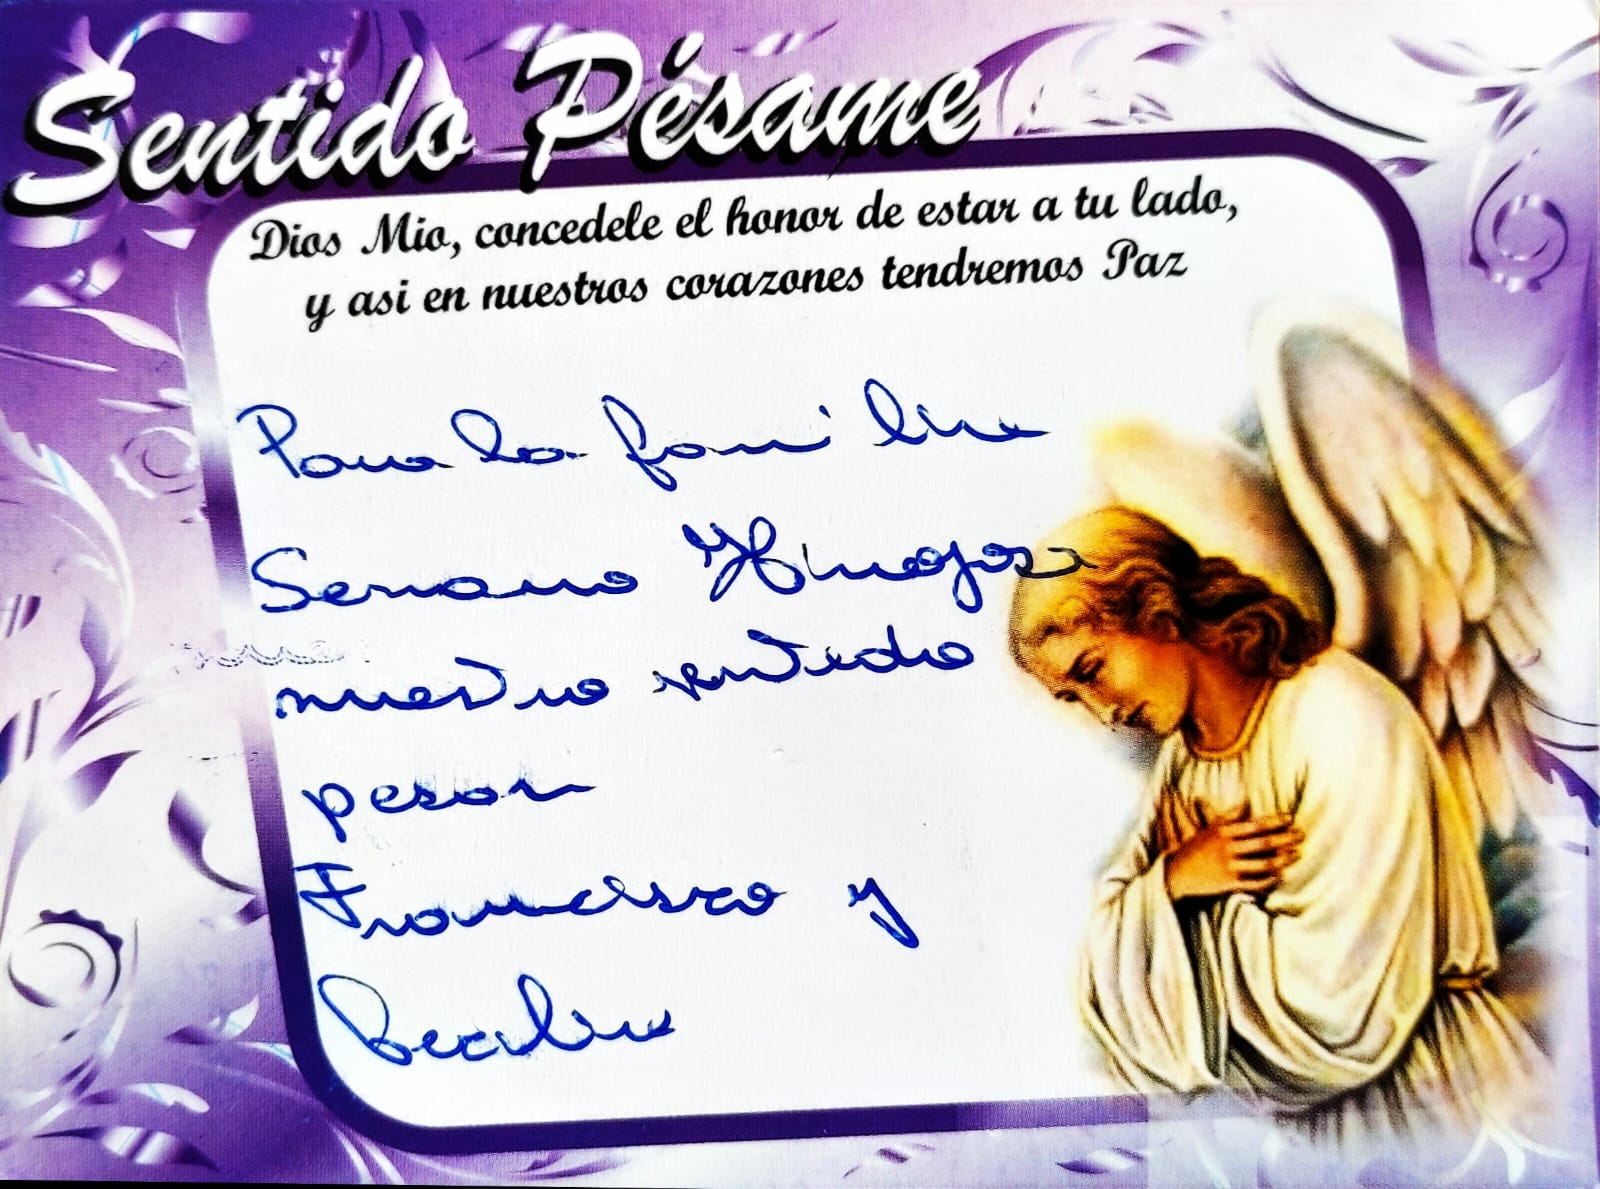 Sentido Pésame
Dios Mio, concedele el honor de estar a tu lado,
y asi en nuestros corazones tendremos Paz
Para la familia
Serrano Hinojosa
nuestro sentido
pesar
Francisco y